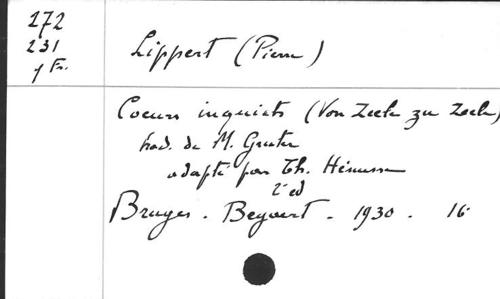 272
231
1 Fr.
Lippert (Pierre)
Coeurs inquiets (Von Seele zu Seele)
trad. de M. Gruter
adapté par Th. Hénusse
2e ed
Bruges. Beyaert. 1930. 16